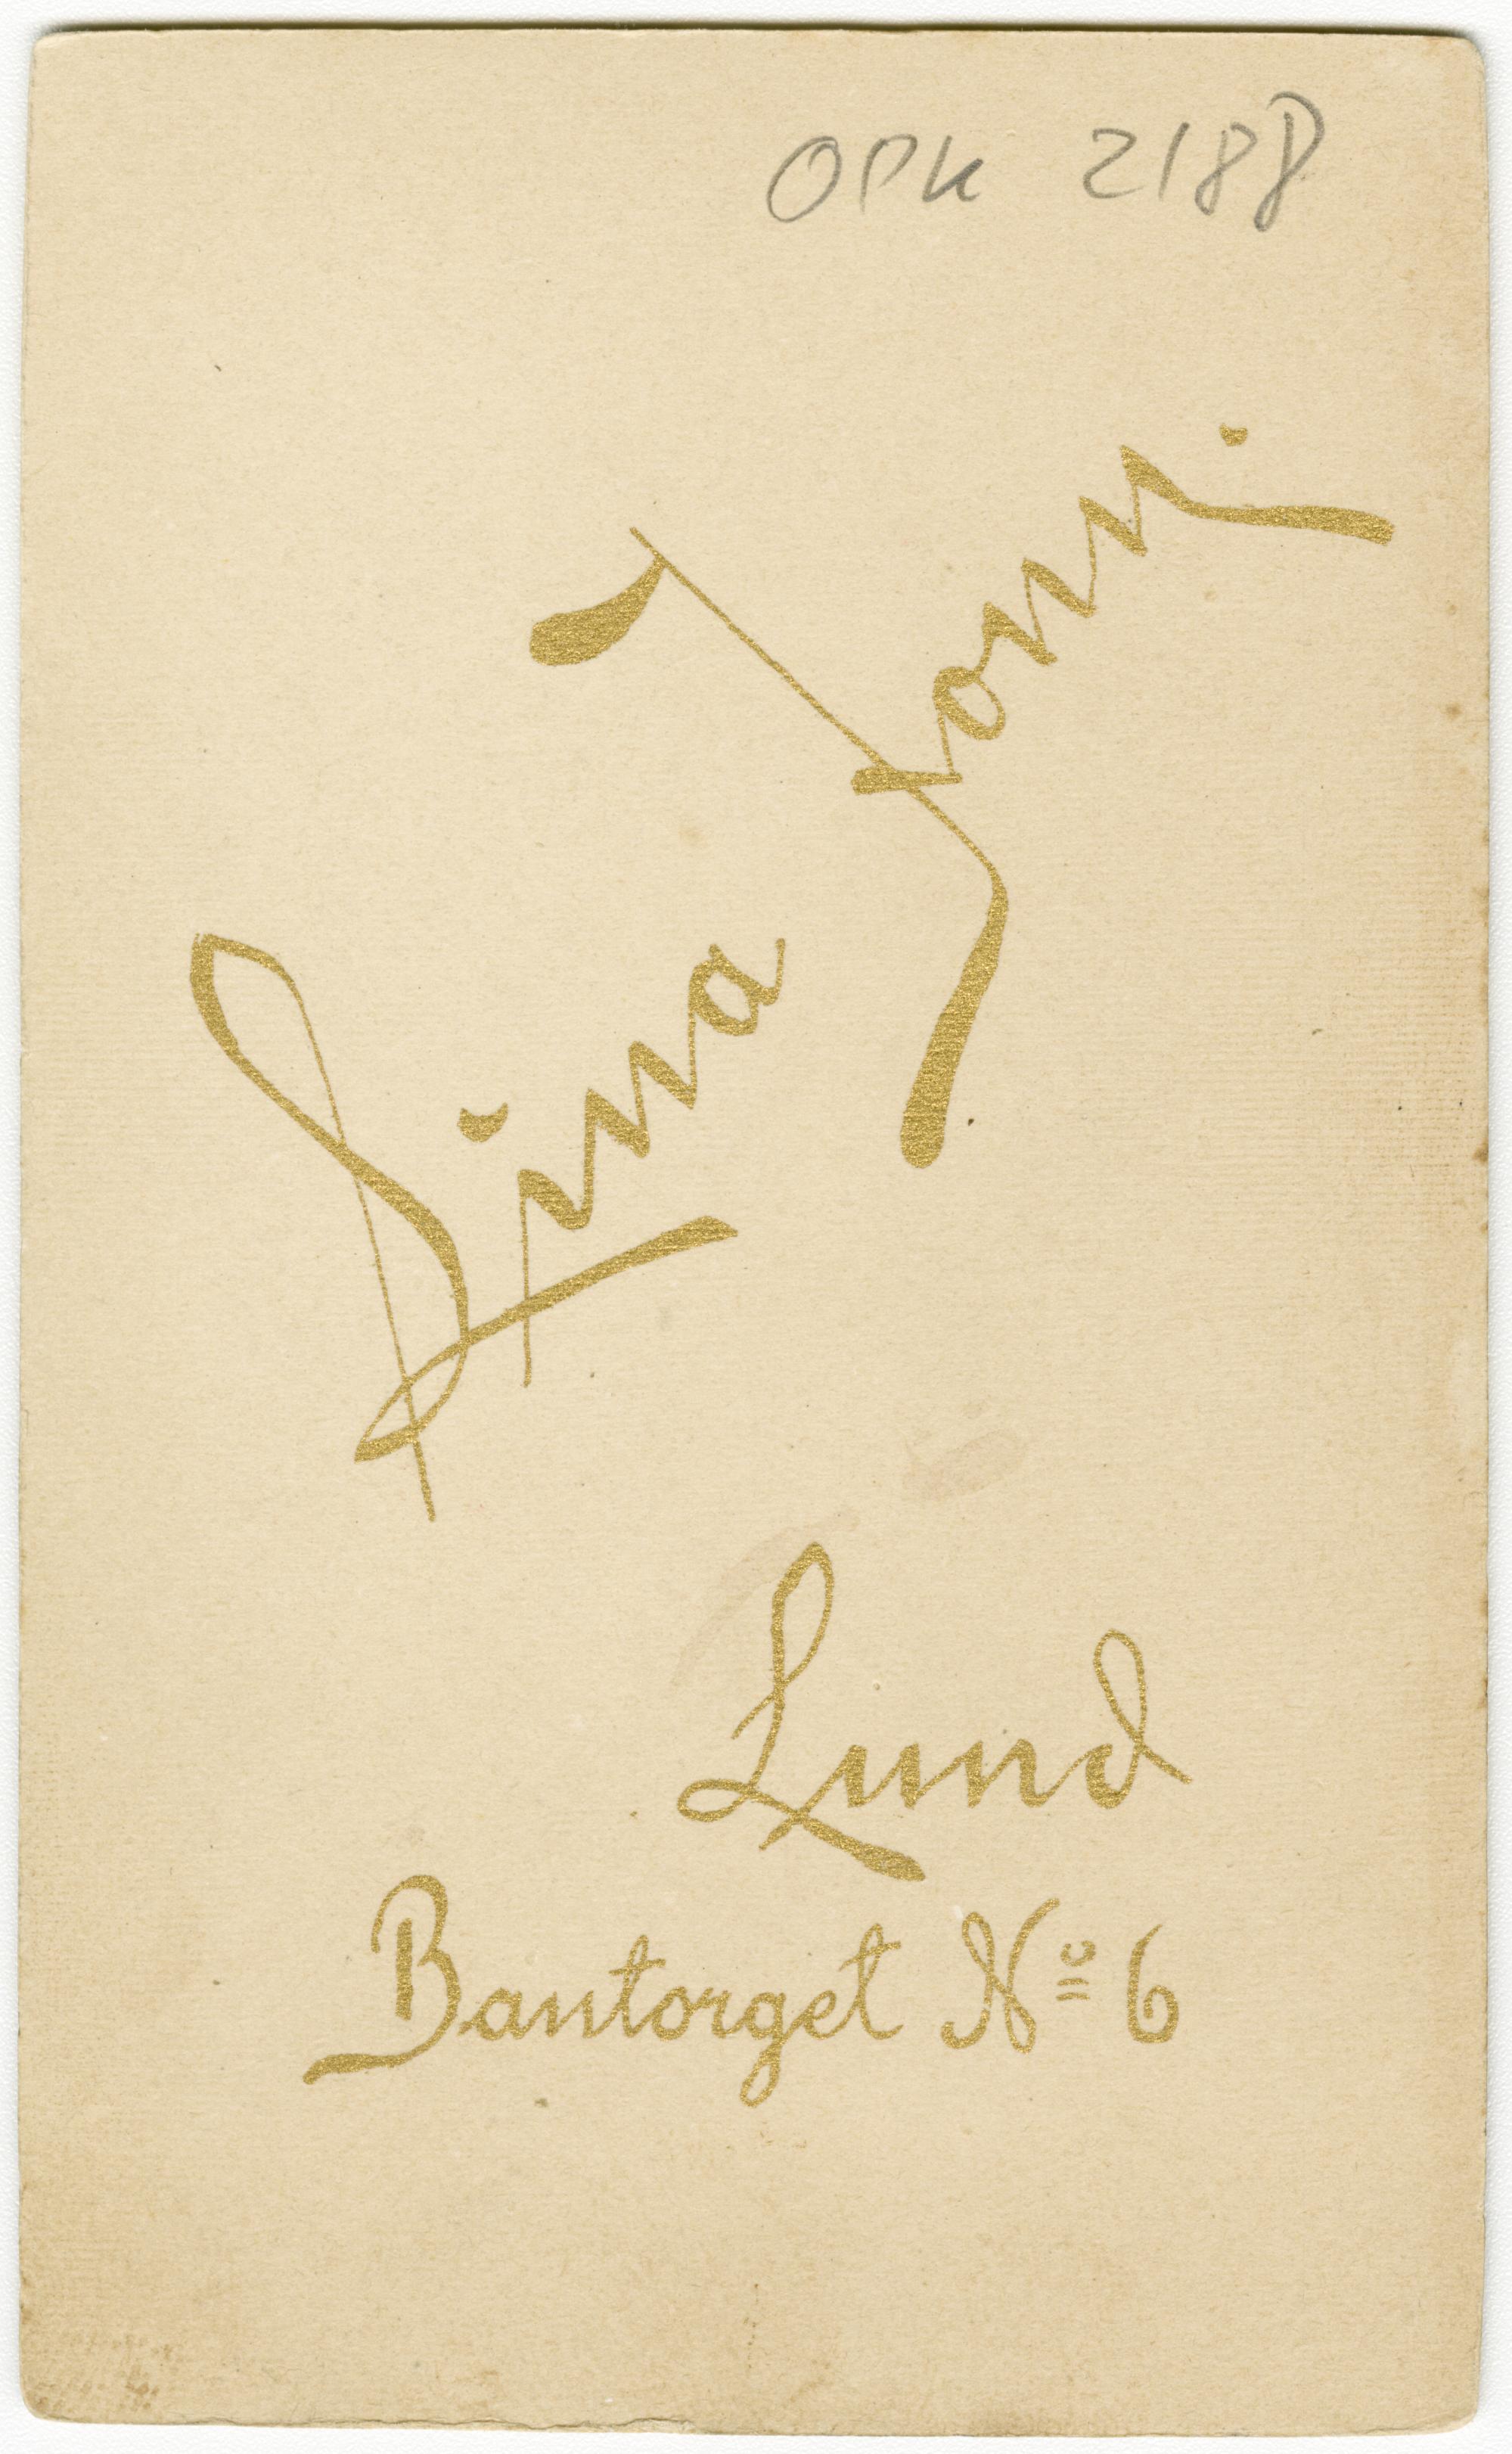 OPK 2188
Lina Jonn.
Lund
Bantorget No 6